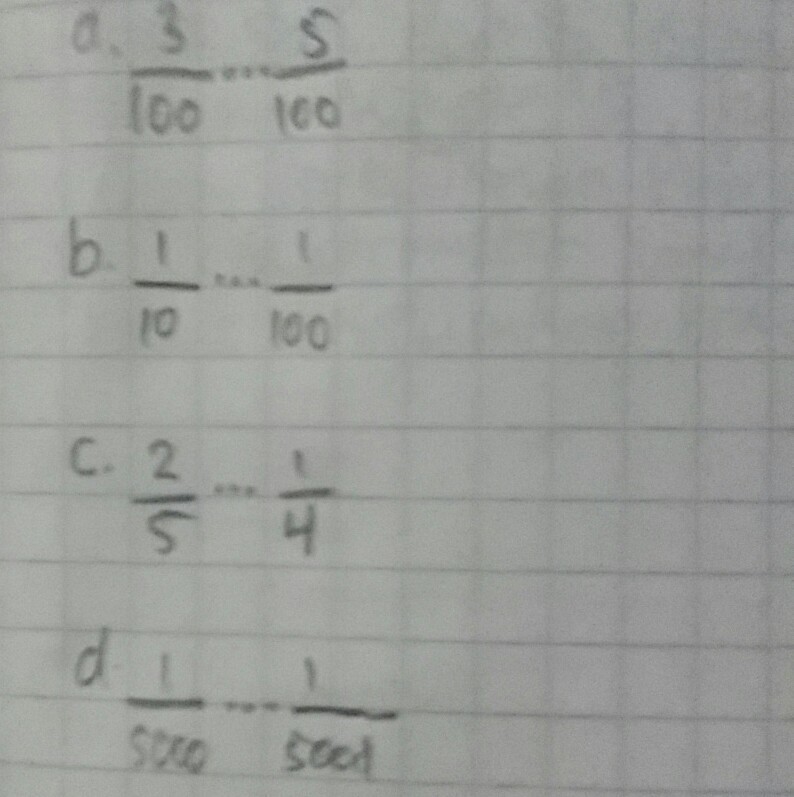 a. 3/100 ... 5/100
b. 1/10 ... 1/100
c. 2/5 ... 1/4
d. 1/5000 ... 1/5001